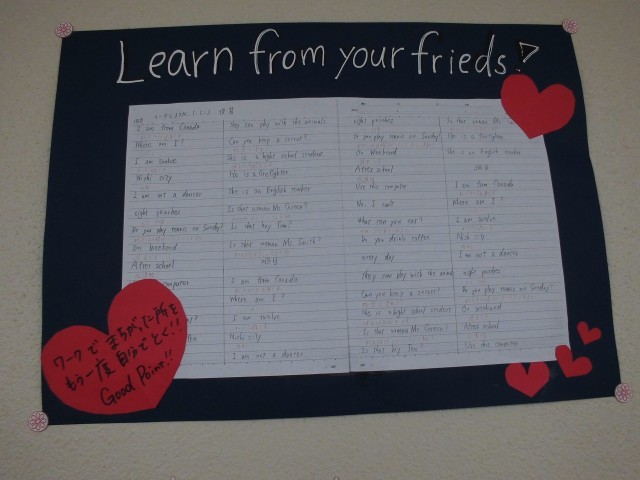 Learn from your frieds!
I am from Canada
Where am I?
I am twelve
Nishi city
I am not a dancer
eight peaches
Do you play tennis on Sunday?
On Weekend
After school
computer
They can play with the animals
Can you keep a secret?
She is a hight school student
He is a firefighter
She is an English teacher
Is that woman Ms. Green?
Is that boy Tom?
Is that woman Ms. Smith?
I am from Canada
Where am I?
I am twelve
Nishi city
I am not a dancer
eight peaches
Do you play tennis on Sunday?
On Weekend
After school
Use the computer
No, I can't
What can you see?
Do you drink coffee
every day
They can play with the
Can you keep a secret?
He is a hight school student
Is that woman Ms. Green?
Is that boy Tom?
Is that woman Ms.
He is a firefighter
She is an English teacher
I am from Canada
Where am I?
I am twelve
Nishi city
I am not a dancer
eight peaches
Do you play tennis on Sunday?
On weekend
After school
Use the computer
ワークで まちがえた所を
もう一度 自分でとく!!
Good Point!!